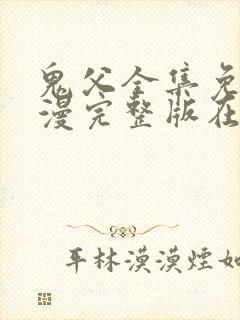 鬼父全集免
漫完整版在
平林漠漠煙如